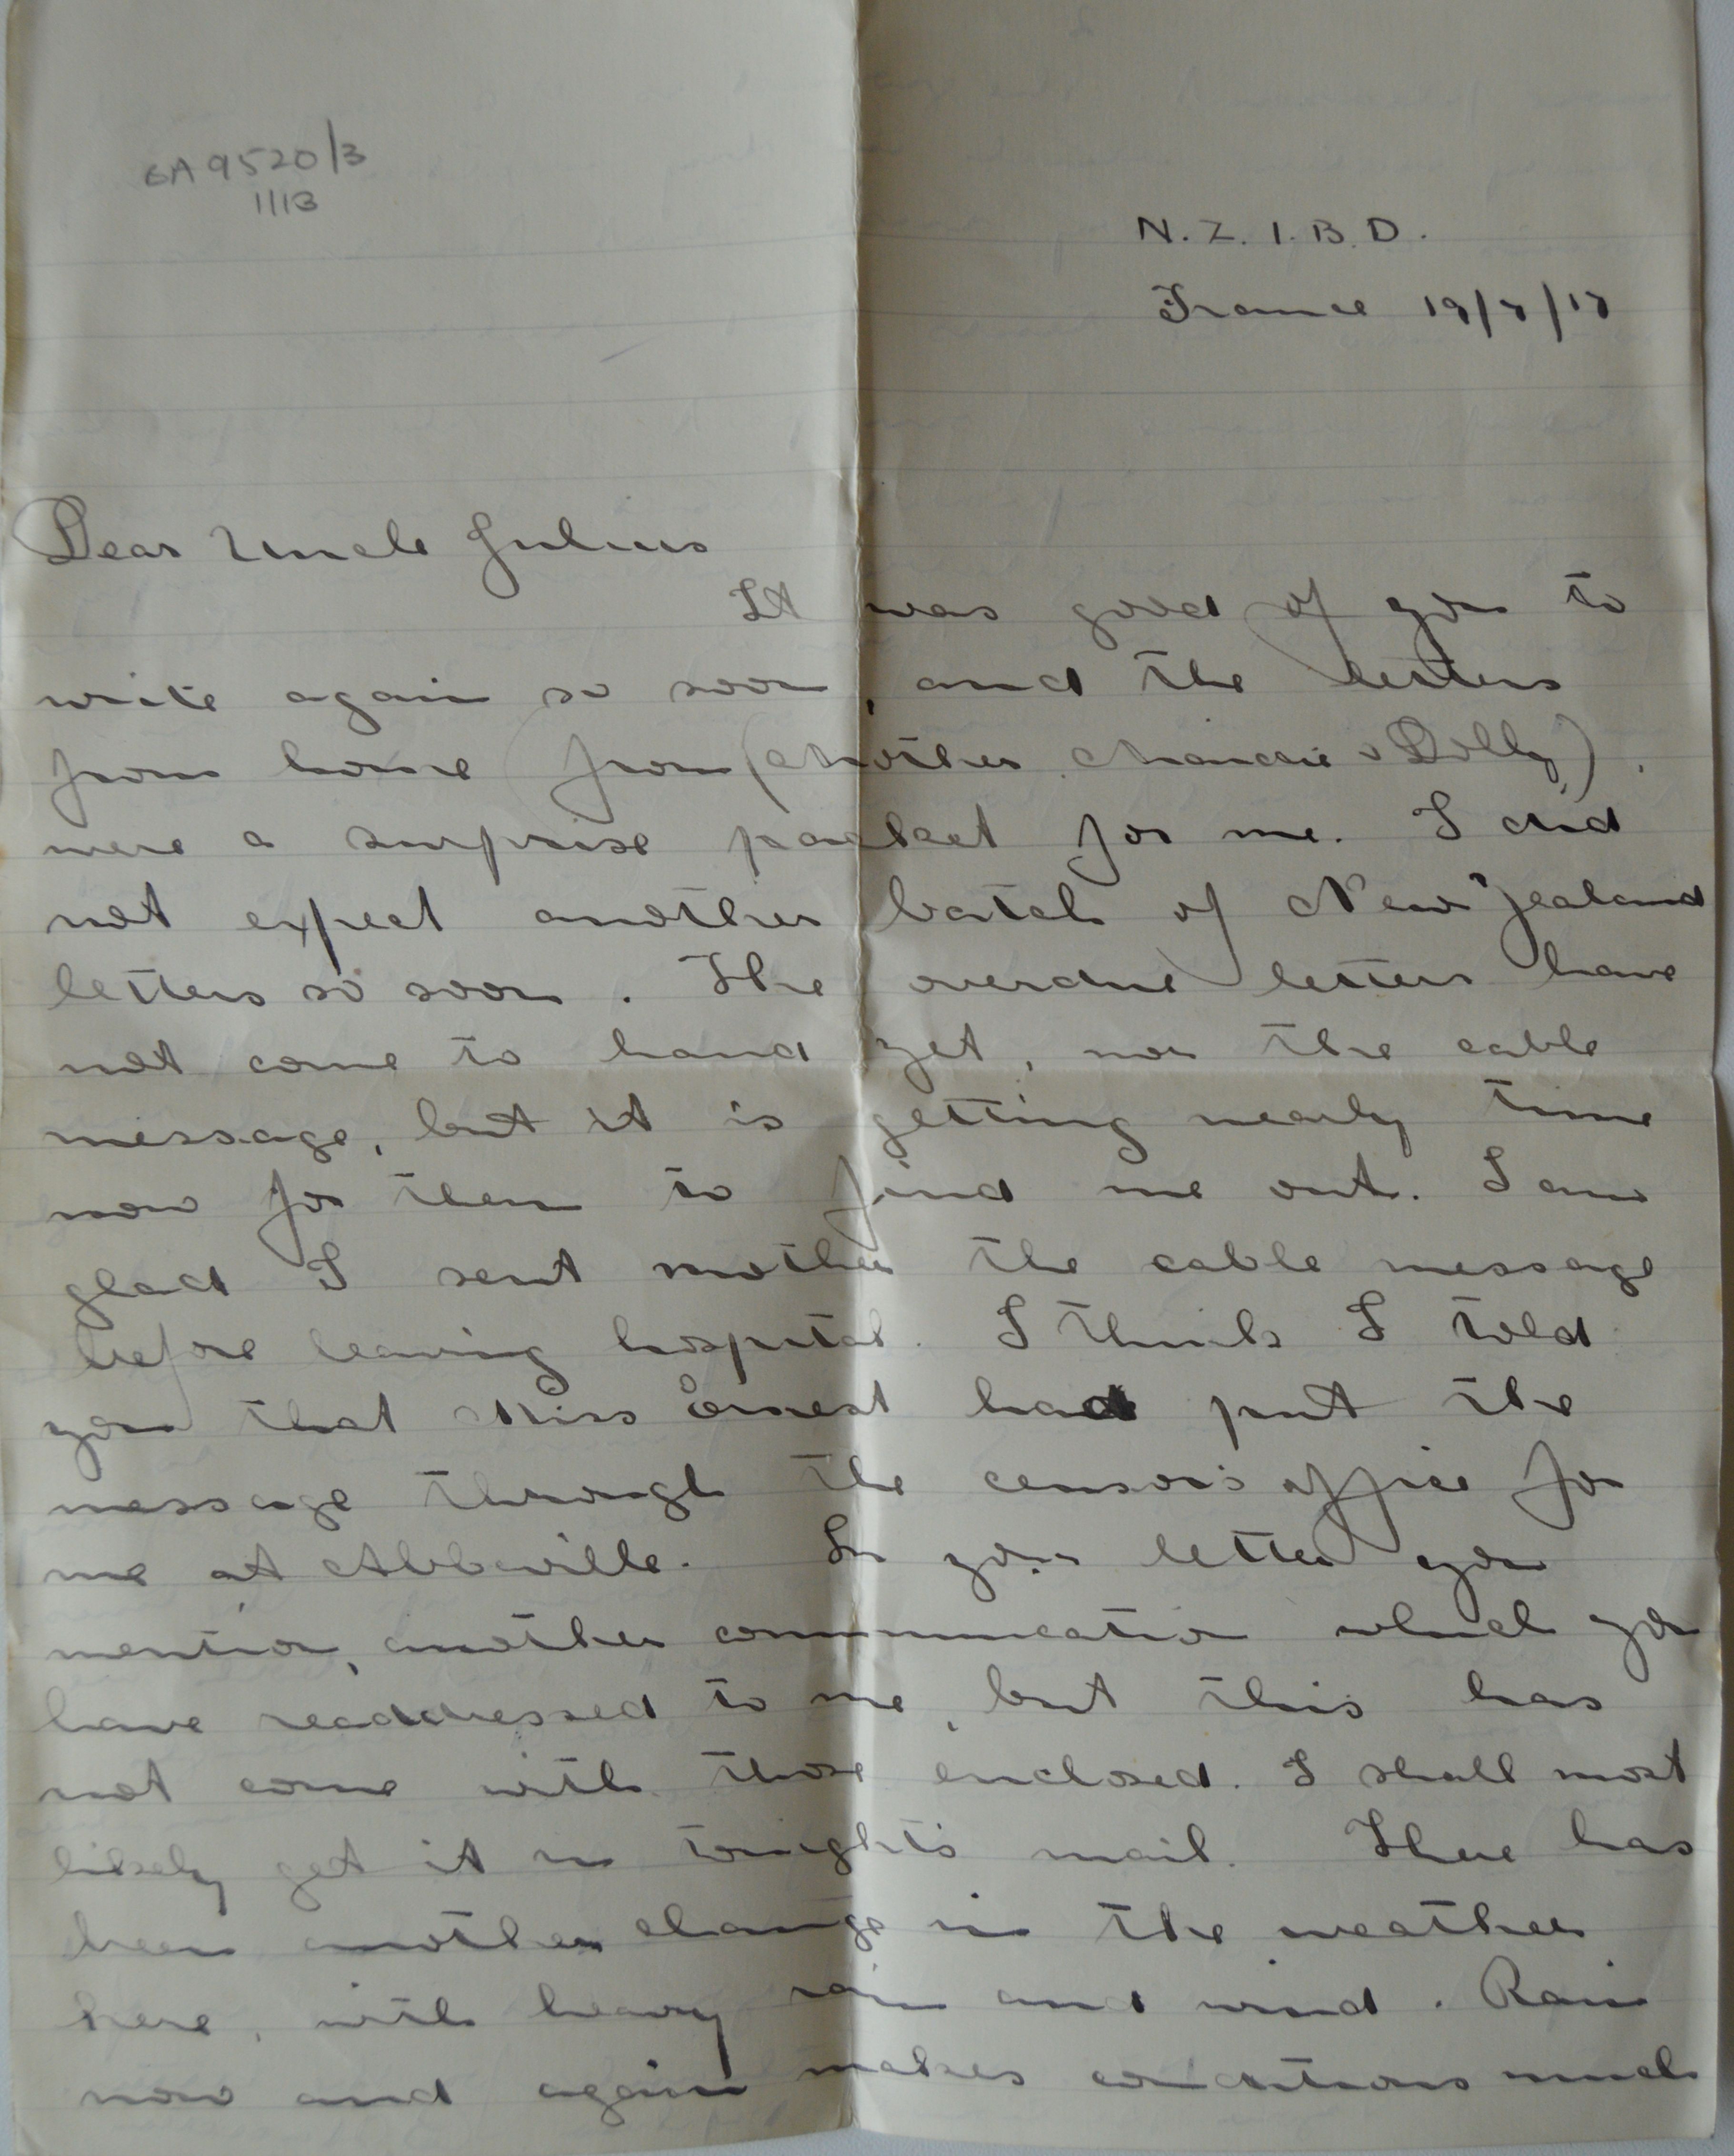 GA 9520/3
1113
N. Z. I. B. D.
France 19/7/17
Dear Uncle Julius
It was good of you to
write again so soon, and the letters
from home (from (Mother, Mancie & Dolly),
were a surprise packet for me. I did
not expect another batch of New Zealand
letters so soon. The overdue letters have
not come to hand yet, nor the cable
message, but it is getting nearly time
now for them to find me out. I am
glad I sent mother the cable message
before leaving hospital. I think I told
you that Miss Ernest had put the
message through the censor's office for
me at Abbeville. In your letter you
mention, another communication which you
have readdressed to me, but this has
not come with those enclosed. I shall most
likely get it in tonight's mail. There has
been another change in the weather
here, with heavy rain and wind. Rain
now and again makes conditions much